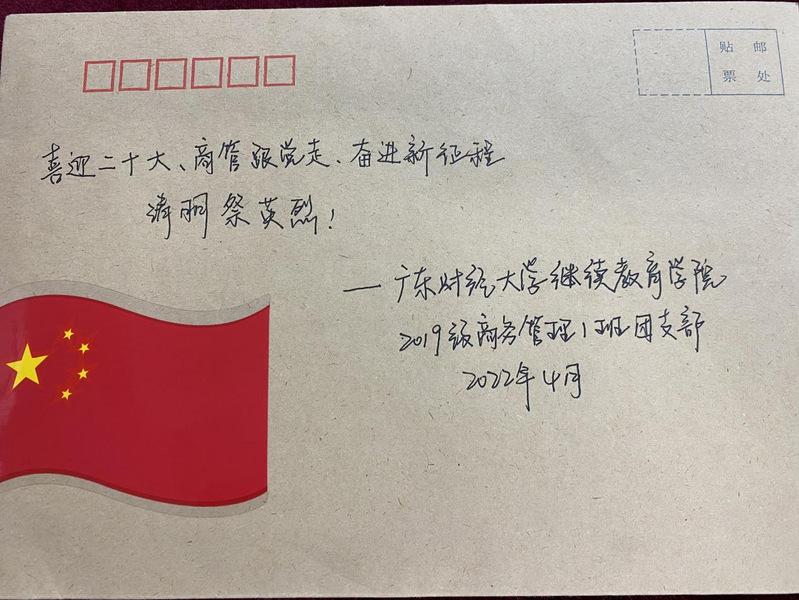 贴 邮
票 处
喜迎二十大、商管跟党走、奋进新征程
清明祭英烈!
— 广东财经大学继续教育学院
2019级商务管理1班团支部
2022年4月